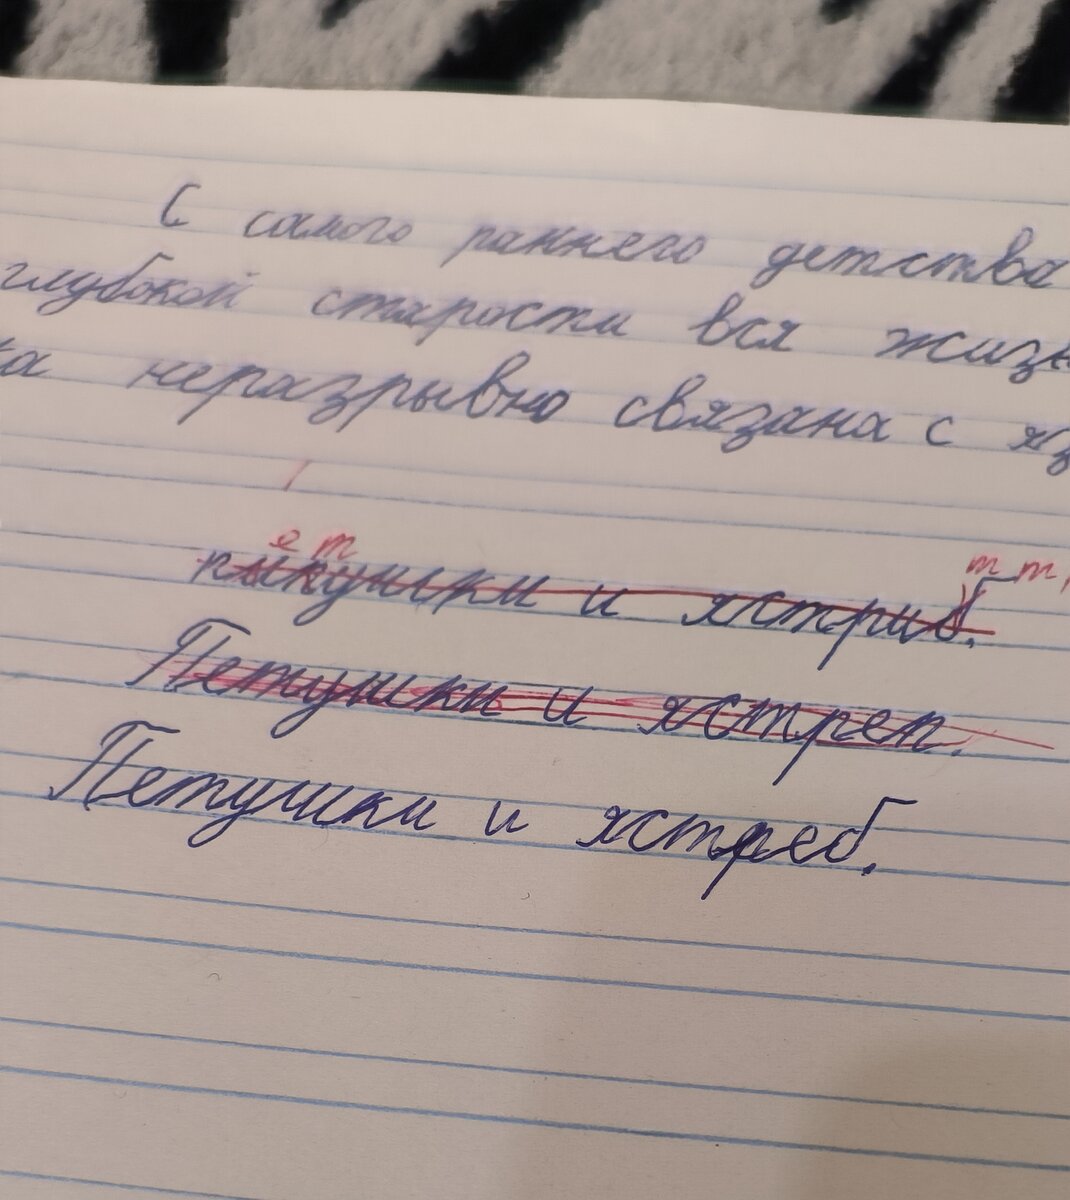 С самого раннего детства
глубокой старости вся жизн
ка неразрывно связана с яз
е т
т т
пыкушки и ястриб.
Петушки и ястреп.
Петушки и ястреб.